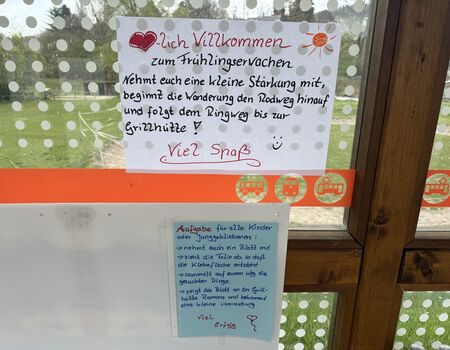 lich Willkommen
zum Frühlingserwachen
Nehmt euch eine kleine Stärkung mit,
beginnt die Wanderung den Rodweg hinauf
und folgt dem Ringweg bis zur
Grillhütte!
Viel Spaß
Aufgabe für alle Kinder
oder Junggebliebenen:
→ nehmt euch ein Blatt mit
→ zieht die Folie ab, so daß
die Klebefläche entsteht
→ sammelt auf eurem Weg die
gesuchten Dinge
→ zeigt das Blatt an der Grill-
hütte Ramona und bekommt
eine kleine Überraschung
Viel
Erfolg